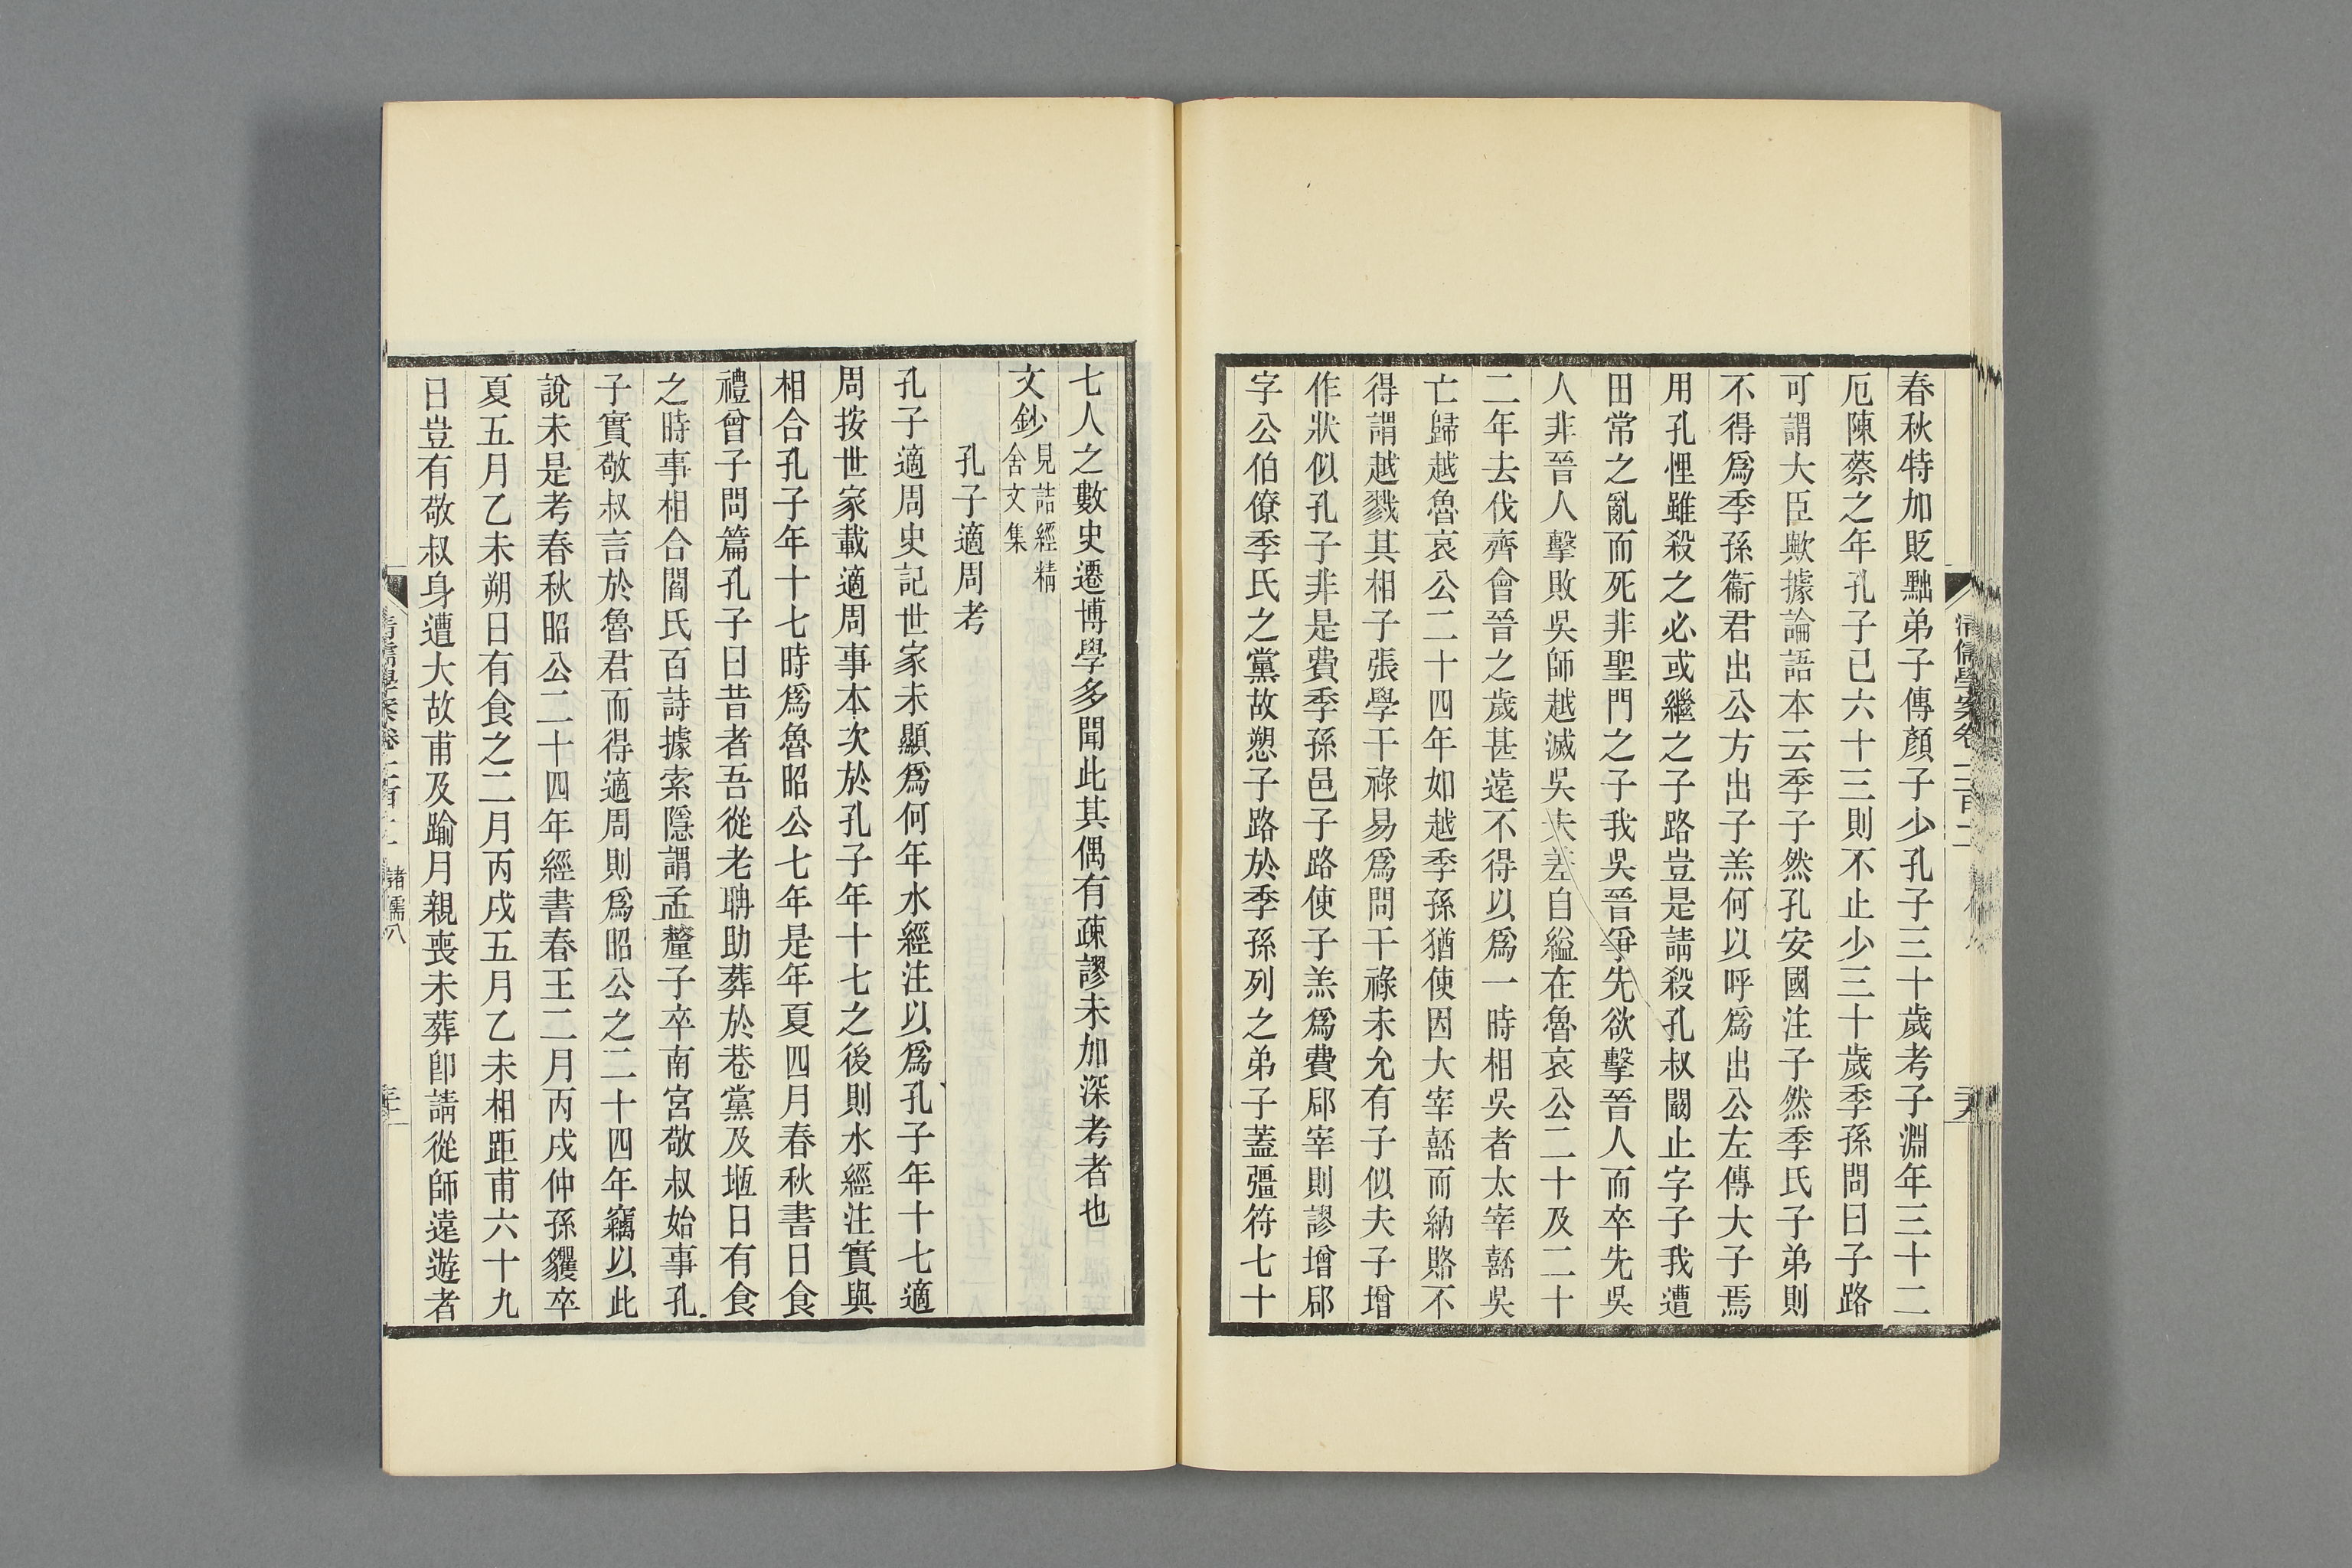 春秋特加貶黜弟子傳顏子少孔子三十歲考子淵年三十二
厄陳蔡之年孔子已六十三則不止少三十歲季孫問曰子路
可謂大臣歟據論語本云季子然孔安國注子然季氏子弟則
不得爲季孫衞君出公方出子羔何以呼爲出公左傳大子焉
用孔悝雖殺之必或繼之子路豈是請殺孔叔闞止字子我遭
田常之亂而死非聖門之子我吳晉爭先欲擊晉人而卒先吳
人非晉人擊敗吳師越滅吳夫差自縊在魯哀公二十及二十
二年去伐齊會晉之歲甚遠不得以爲一時相吳者太宰嚭吳
亡歸越魯哀公二十四年如越季孫猶使因大宰嚭而納賂不
得謂越戮其相子張學干祿易爲問干祿未允有子似夫子增
作狀似孔子非是費季孫邑子路使子羔爲費郈宰則謬增郈
字公伯僚季氏之黨故愬子路於季孫列之弟子蓋彊符七十
清儒學案卷二百二
七人之數史遷博學多聞此其偶有疎謬未加深考者也
文鈔見詁經精
舍文集
孔子適周考
孔子適周史記世家未顯爲何年水經注以爲孔子年十七適
周按世家載適周事本次於孔子年十七之後則水經注實與
相合孔子年十七時爲魯昭公七年是年夏四月春秋書日食
禮曾子問篇孔子曰昔者吾從老聃助葬於巷黨及堩日有食
之時事相合閻氏百詩據索隱謂孟釐子卒南宮敬叔始事孔
子實敬叔言於魯君而得適周則爲昭公之二十四年竊以此
說未是考春秋昭公二十四年經書春王二月丙戌仲孫貜卒
夏五月乙未朔日有食之二月丙戌五月乙未相距甫六十九
日豈有敬叔身遭大故甫及踰月親喪未葬卽請從師遠遊者
清儒學案卷二百二 諸儒八